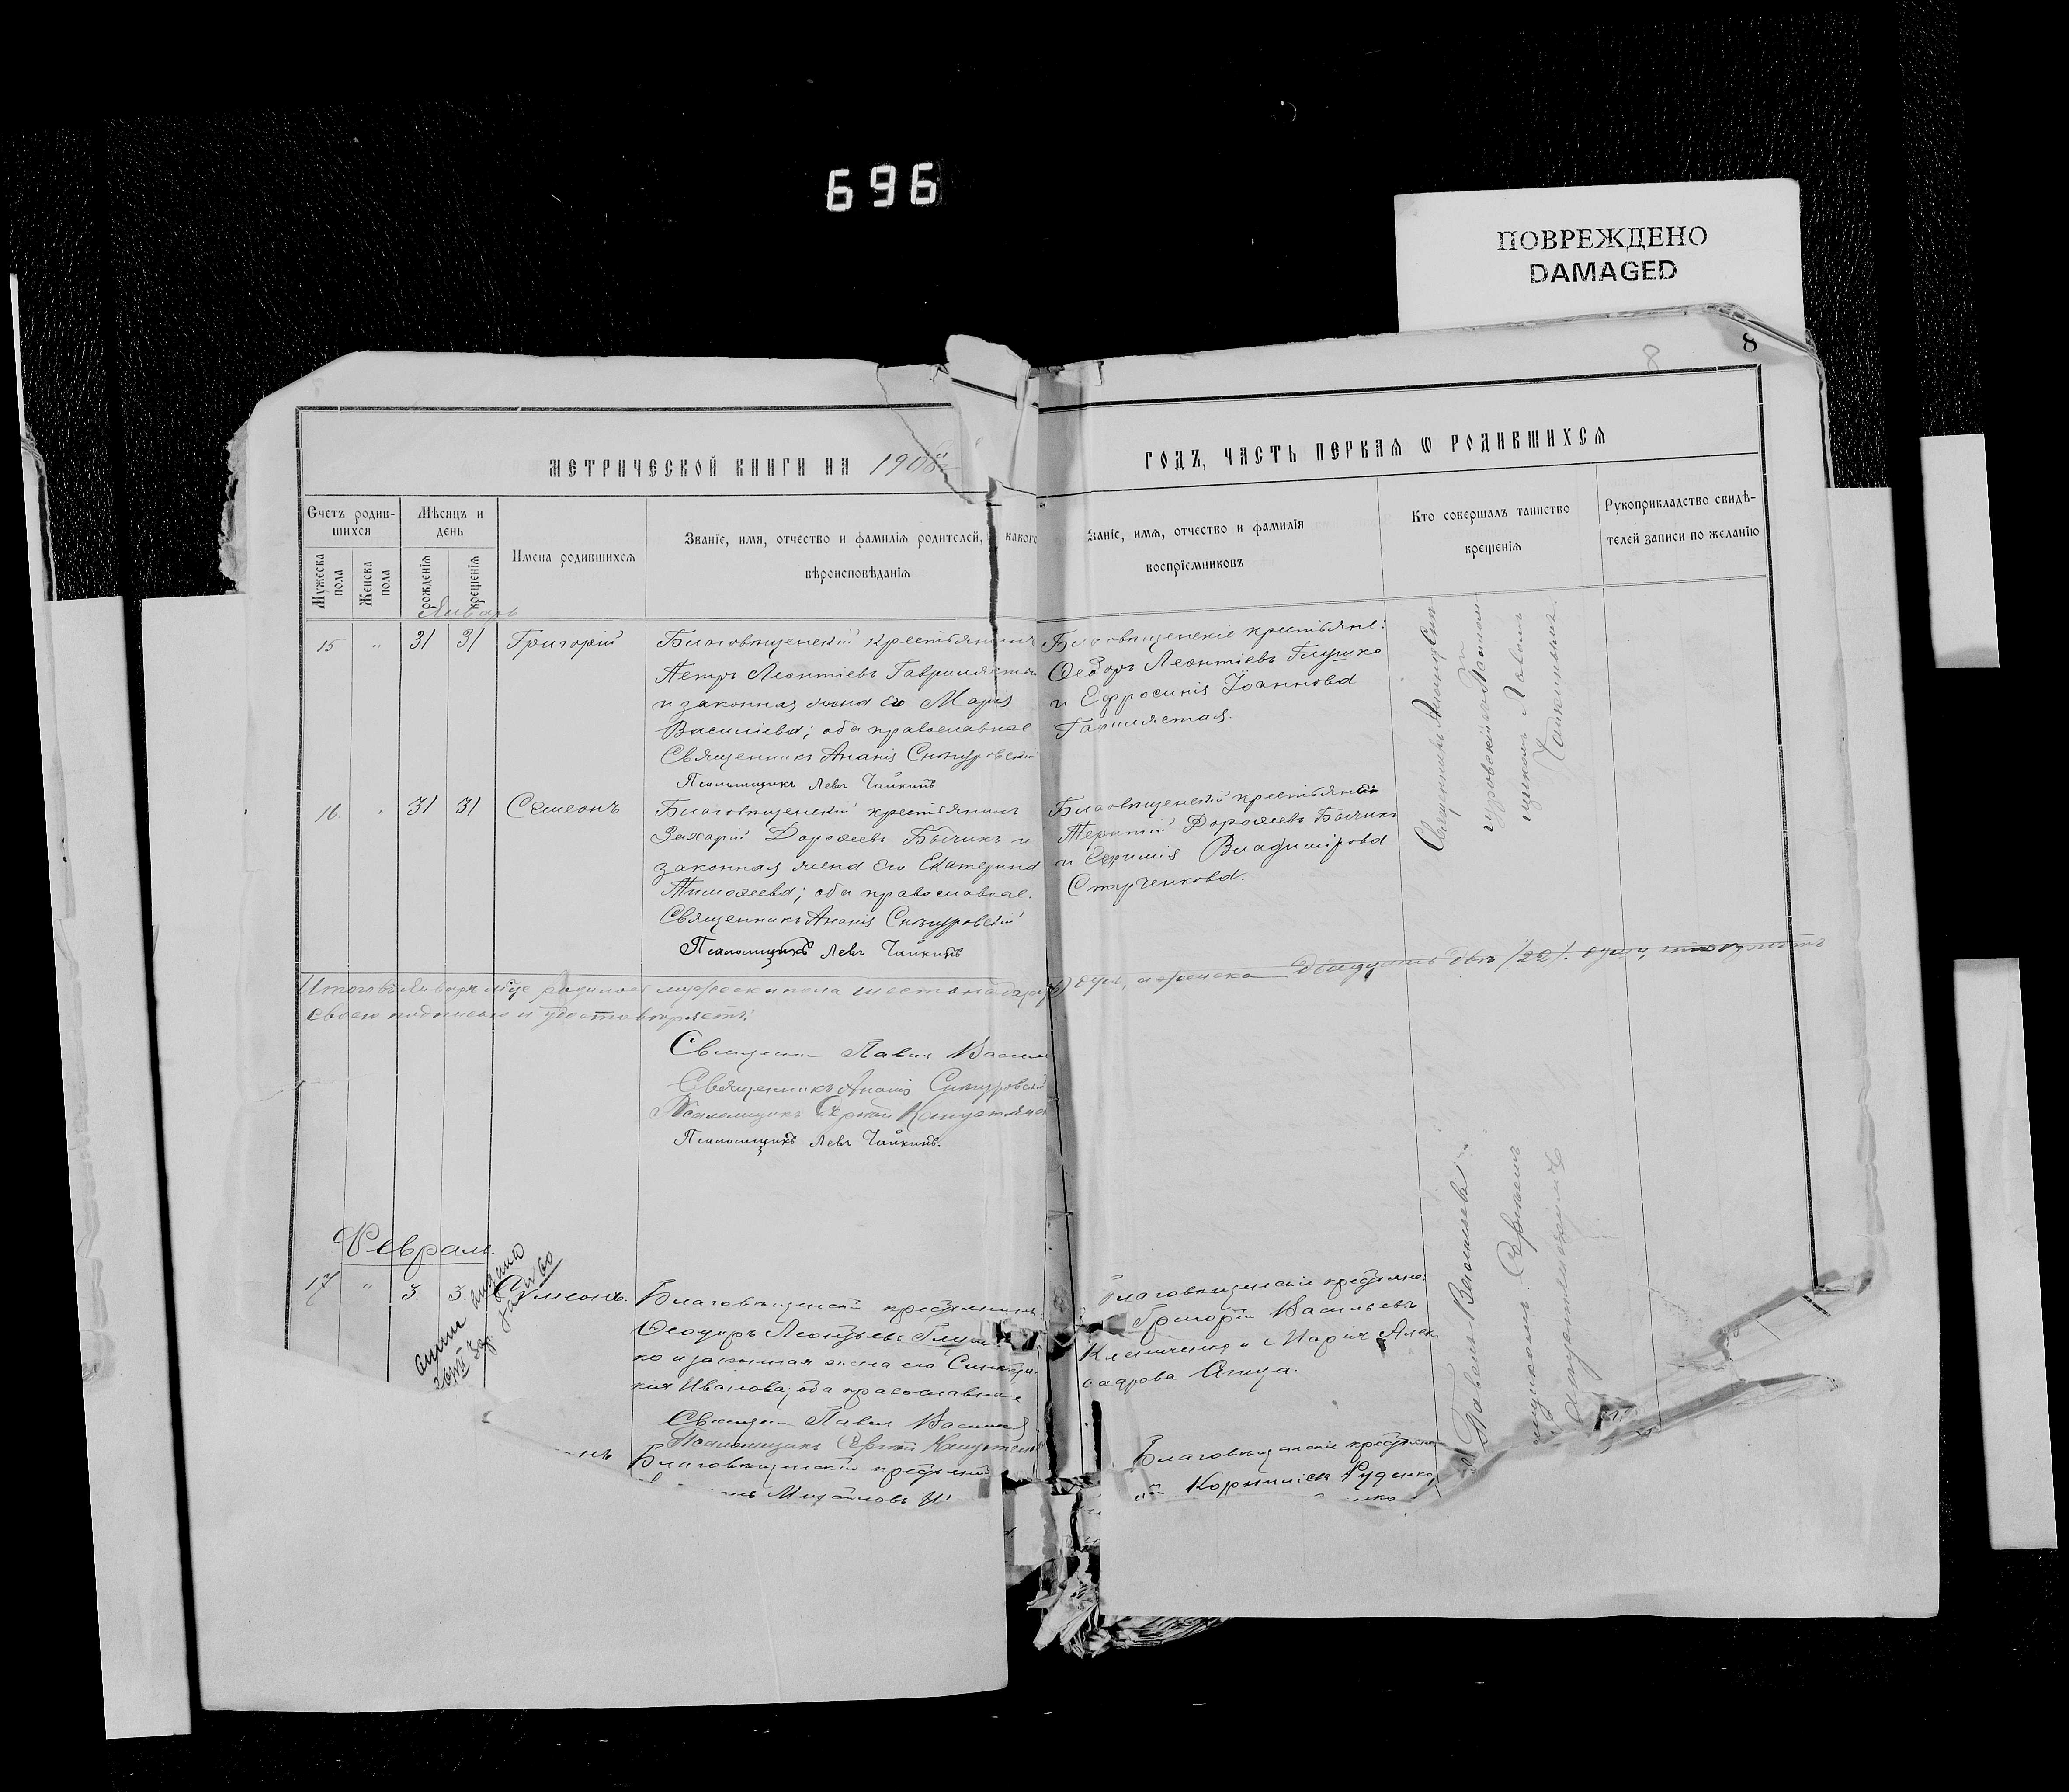 696
ПОВРЕЖДЕНО
DAMAGED
8
8
МЕТРИЧЕСКОЙ КНИГИ НА 1908
ГОДЪ, ЧАСТЬ ПЕРВАЯ Ѡ РОДИВШИХСЯ
Счетъ родив-
шихся
Мужеска пола
Женска пола
Мѣсяцъ и
день
рожденія
крещенія
Имена родившихся
Званіе, имя, отчество и фамилія родителей, какого
вѣроисповѣданія
Званіе, имя, отчество и фамилія
воспріемниковъ
Кто совершалъ таинство
крещенія
Рукоприкладство свидѣ-
телей записи по желанію
Январь
15 " 31 31 Григорій
Благовѣщенскій крестьянинъ
Петръ Леонтіевъ
и законная жена его Марія
Василіева; оба православные
Священникъ Ананія
Псаломщикъ Левъ Чайкинъ
Благовѣщенскіе крестьяне:
Ѳеодоръ Леонтіевъ Глушко
и Ефросинія Іоаннова
16 " 31 31 Симеонъ
Благовѣщенскій крестьянинъ
Захарій Дороѳеевъ Бычикъ и
законная жена его Екатерина
Тимоѳеева; оба православные.
Священникъ Ананія
Псаломщикъ Левъ Чайкинъ
Благовѣщенскій крестьянинъ
Терентій Дороѳеевъ Бычикъ
и Евфимія Владимірова
Старченкова.
Священникъ Ананія
псалом
щикомъ Львомъ
Чайкинымъ.
Итого въ Январѣ м-цѣ родилось мужеска пола шестьнадцать
душъ, а женска двадцать двѣ (22) душъ,
своею подписью и удостовѣряетъ:
Священникъ Павелъ
Священникъ Ананія
Псаломщикъ Сергѣй
Псаломщикъ Левъ Чайкинъ.
Февраль.
17 " 3. 3. Симеонъ.
Благовѣщенскій крестьянинъ
Ѳеодоръ Леонтьевъ Глуш
ко и законная жена его Синклити
кія Иванова; оба православные
Священникъ Павелъ
Псаломщикъ Сергѣй
Благовѣщенскіе крестьяне:
Григорій Васильевъ
Клейменко и Марія Алек
сандрова
Павелъ Васильевъ
Сергѣемъ
Благовѣщенскій крестьянинъ
Михайловъ
Благовѣщенскіе крестьяне
Корнилія Руденко